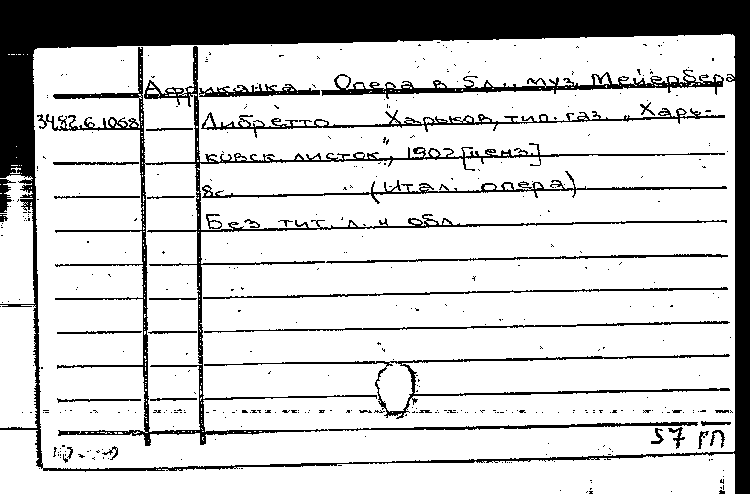 Африканка. Опера в 5 д., муз. Мейербера
34.82.6.1068 Либретто Харьков, тип. газ. „Харь-
ковск. листок", 1902 [ценз.]
8с. (Итал. опера)
Без тит. л. и обл.
57 РП